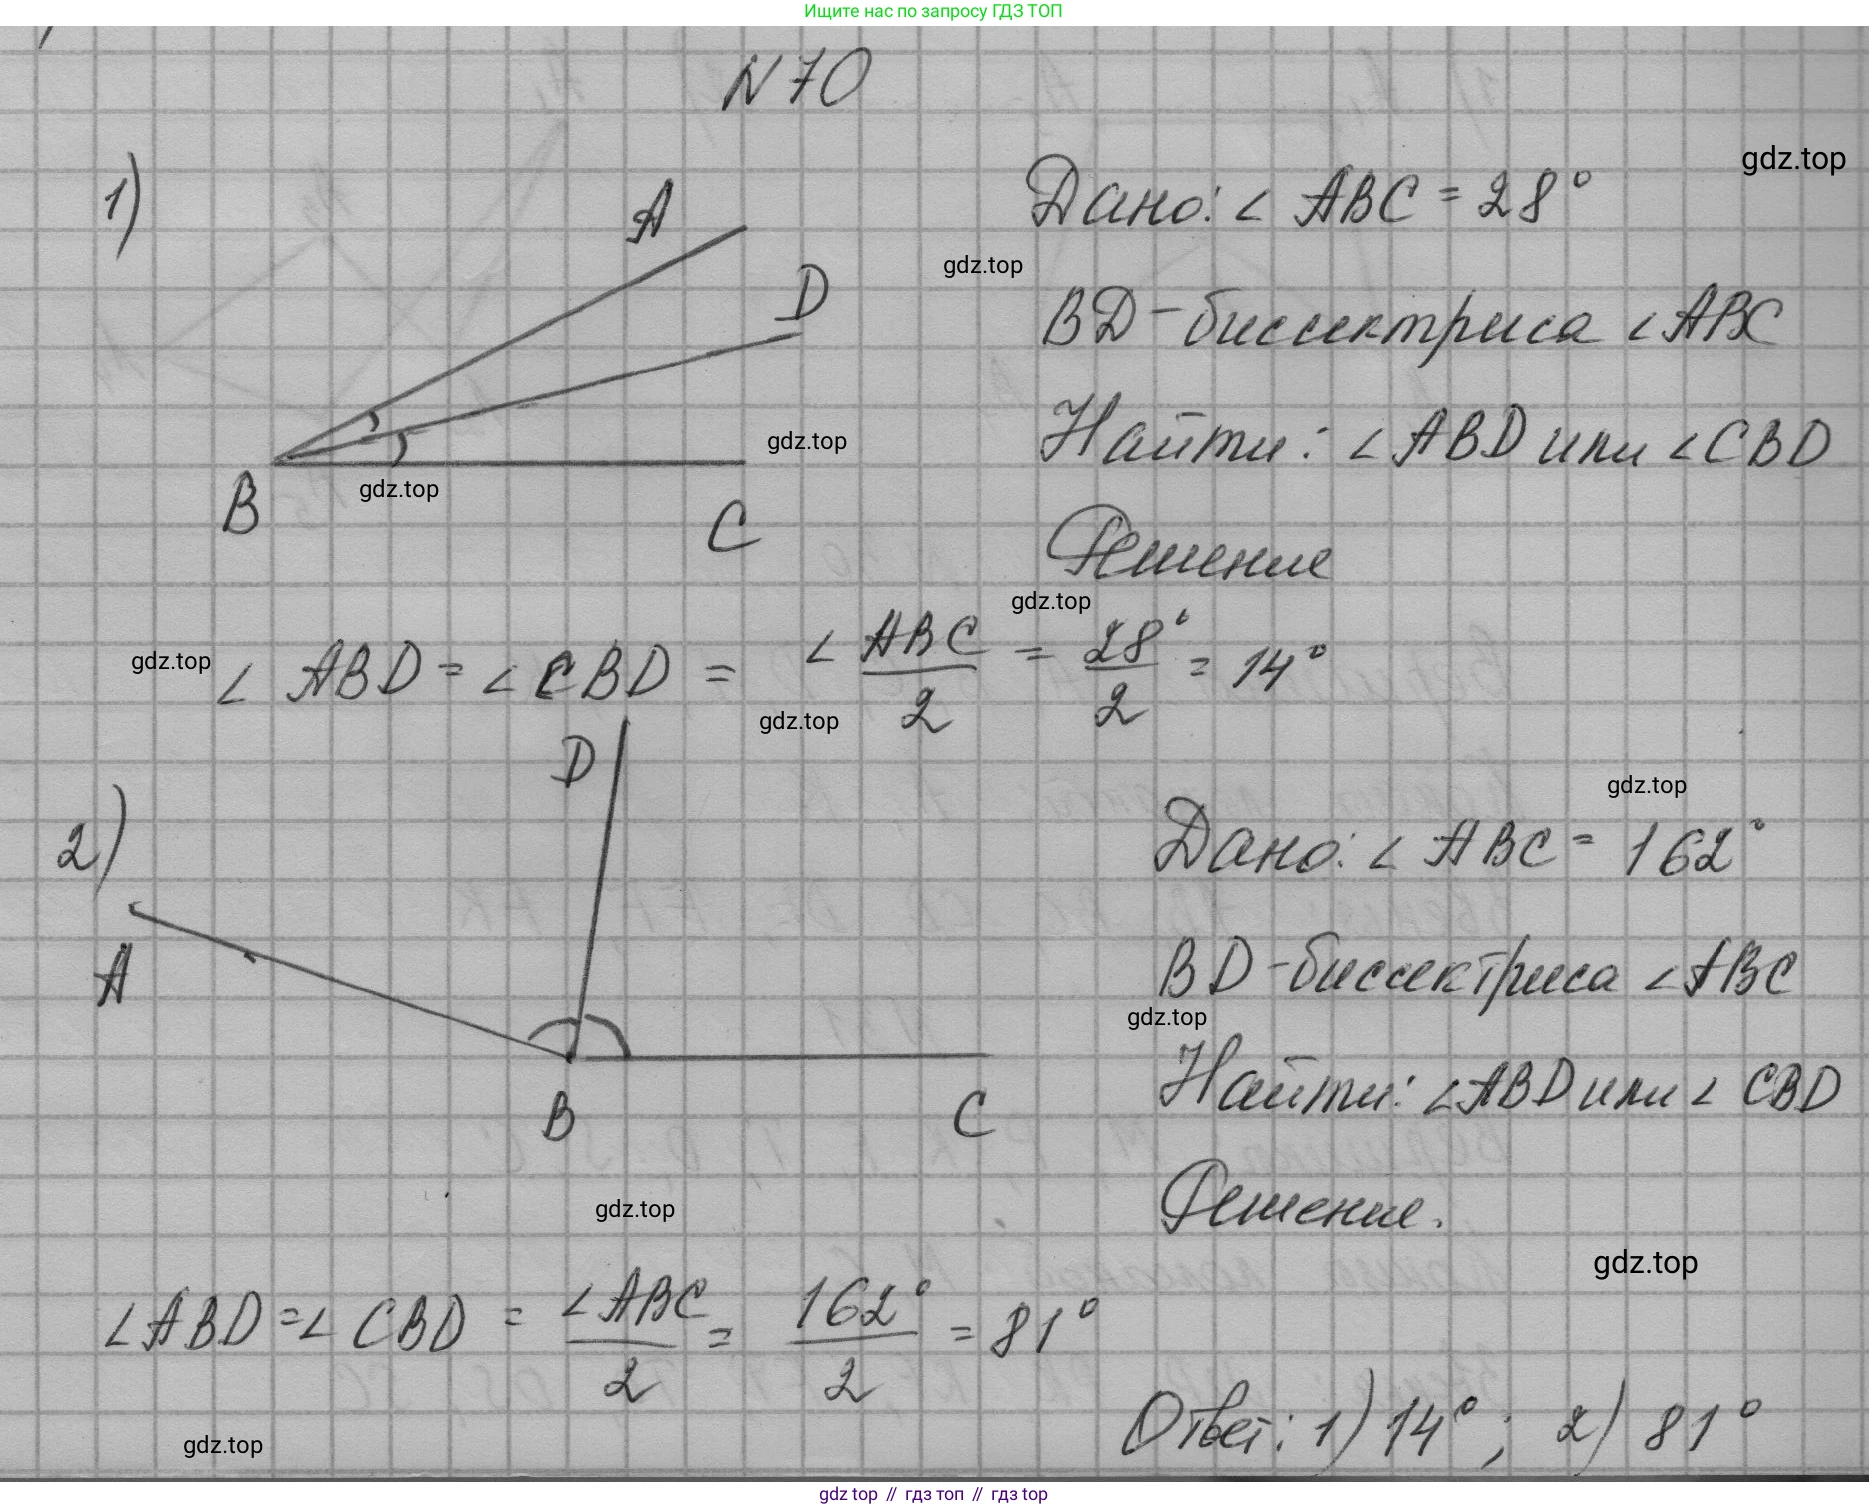 Ищите нас по запросу ГДЗ ТОП
N 70
gdz.top
1)
A
D
B
C
Дано: ∠ ABC = 28°
gdz.top
BD - биссектриса ∠ABC
Найти: ∠ABD или ∠CBD
gdz.top
gdz.top
Решение
gdz.top
gdz.top
∠ ABD = ∠ CBD = ∠ ABC / 2 = 28° / 2 = 14°
gdz.top
2)
D
A
B
C
gdz.top
Дано: ∠ ABC = 162°
BD - биссектриса ∠ABC
gdz.top
Найти: ∠ABD или ∠ CBD
Решение.
gdz.top
gdz.top
∠ABD = ∠ CBD = ∠ABC / 2 = 162° / 2 = 81°
Ответ: 1) 14° ; 2) 81°
gdz.top
gdz top // гдз топ // гдз top